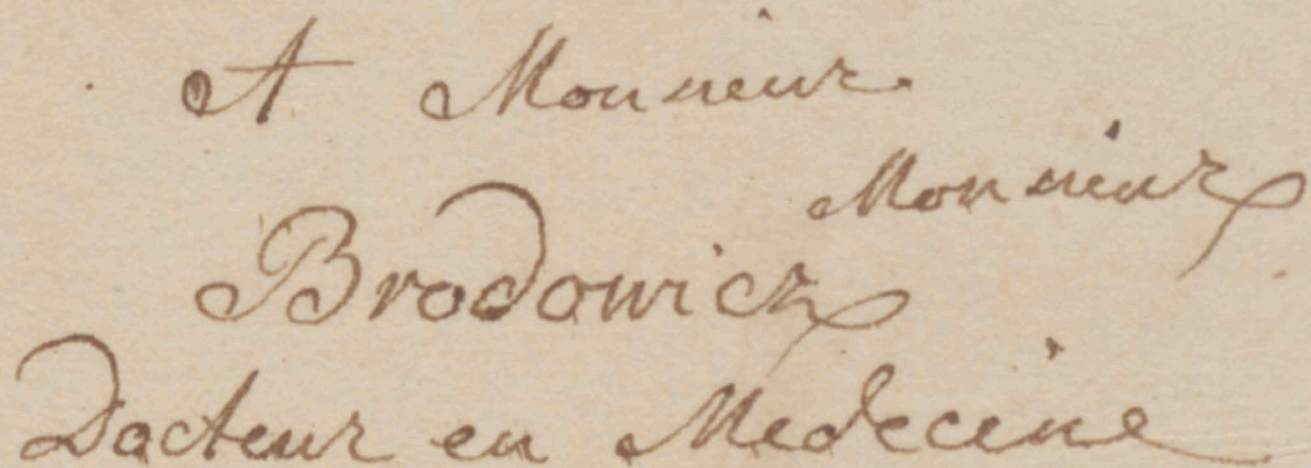 A Monsieur
Monsieur
Brodowicz
Docteur en Medecine